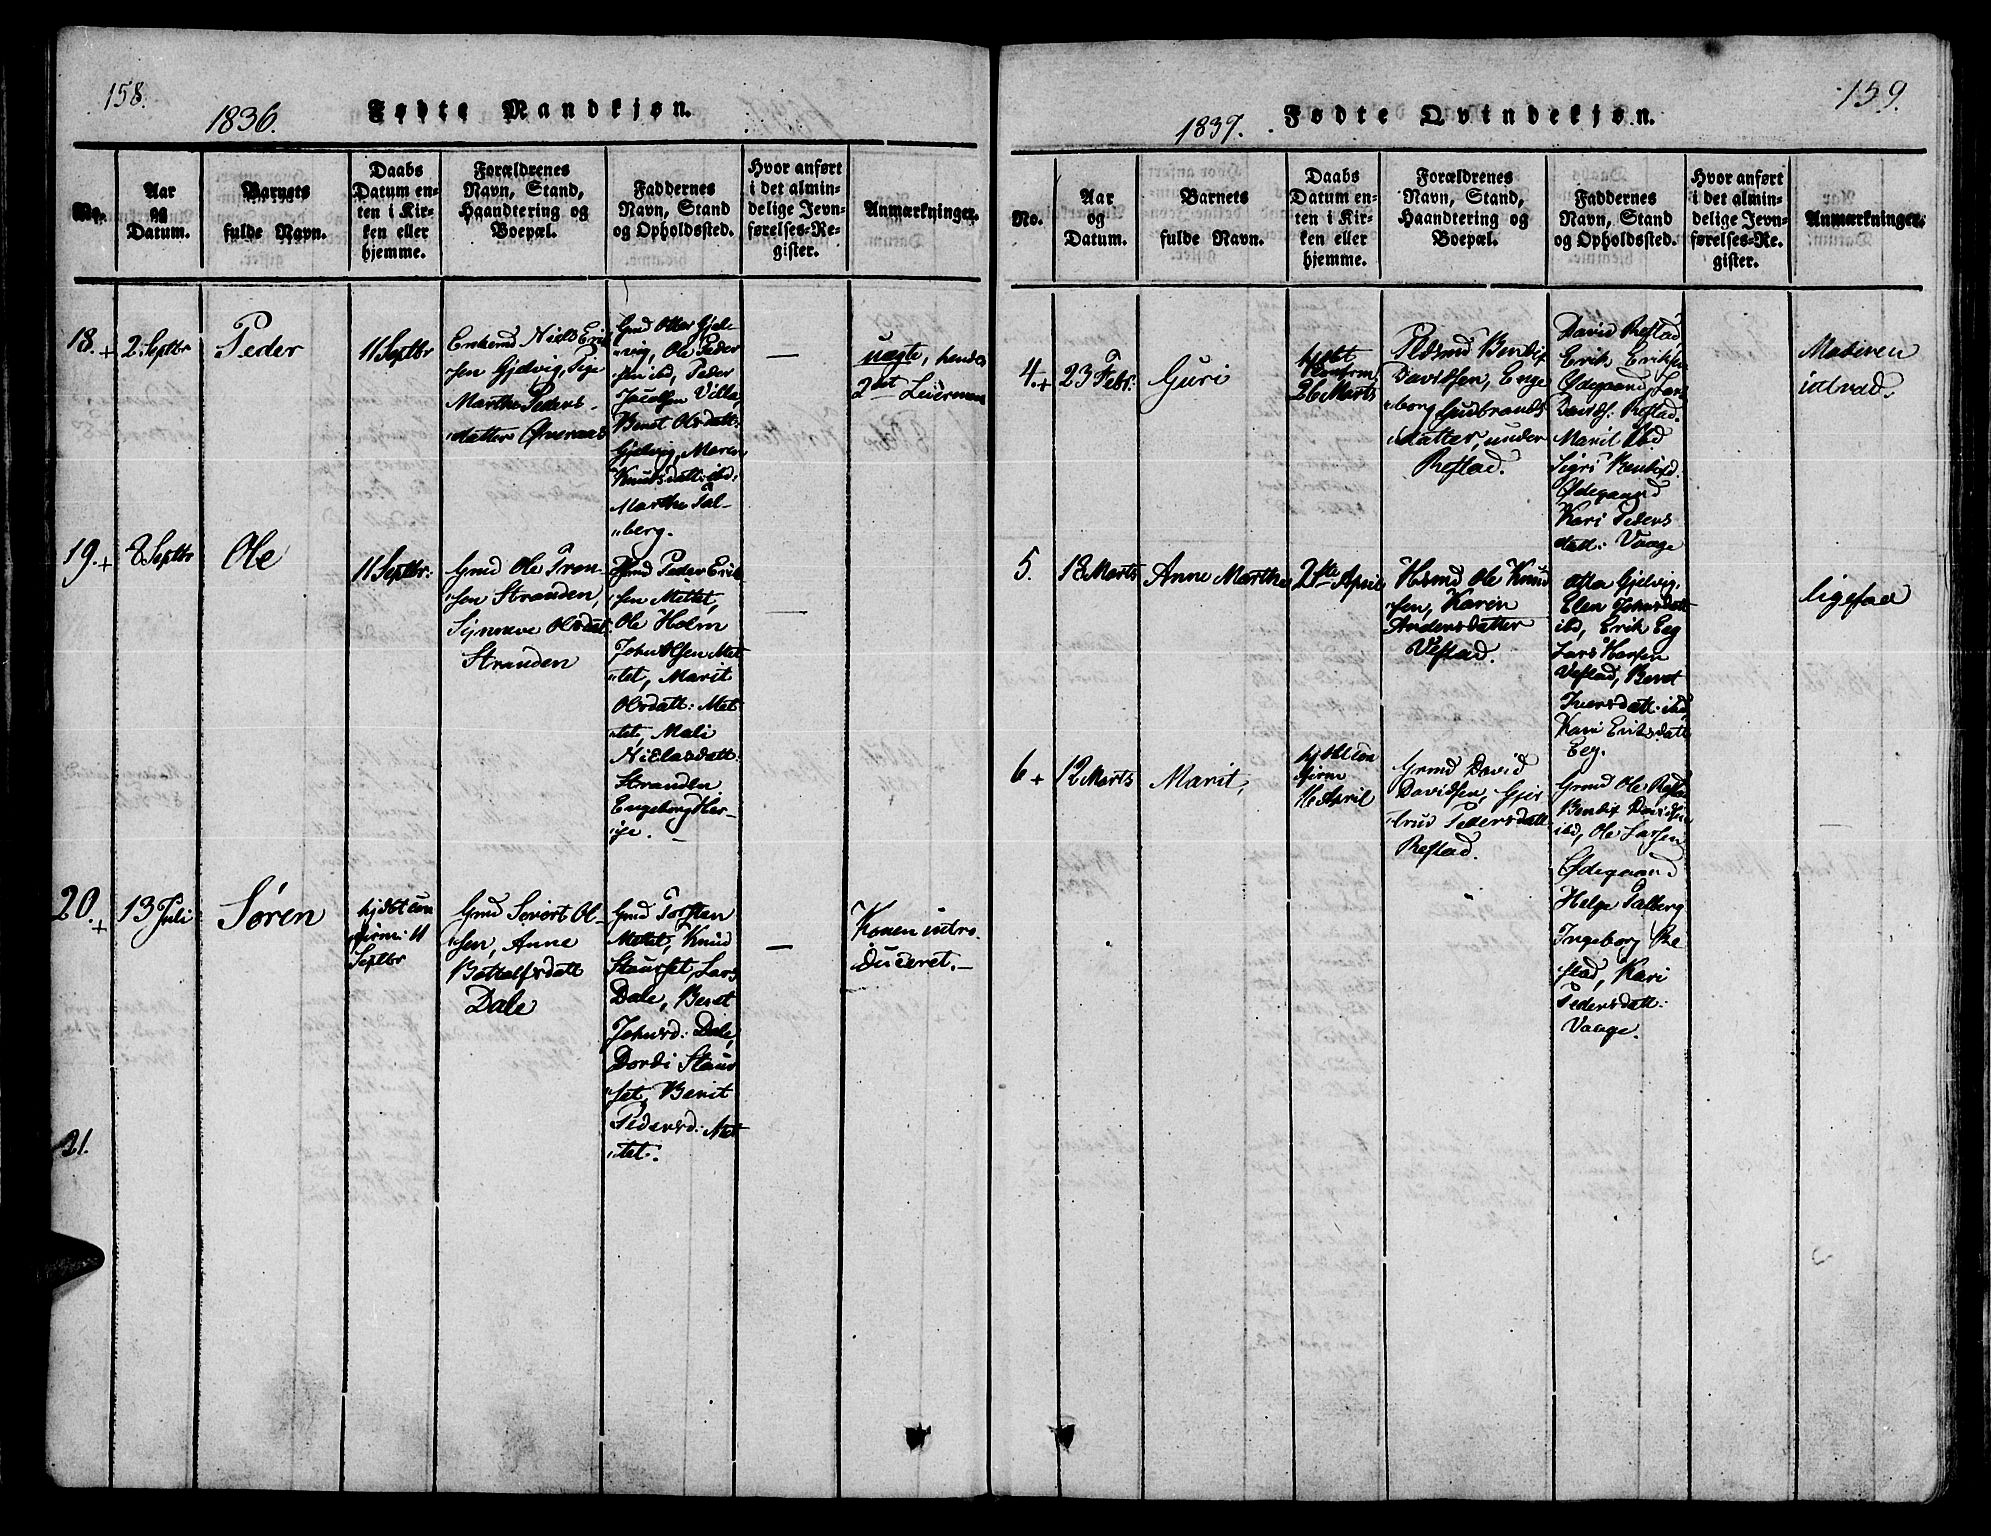 158.
1836.
Fødte Mandkjøn.
No.
Aar
og
Datum.
Barnets
fulde Navn.
Daabs
Datum en-
ten i Kir-
ken eller
hjemme.
Forældrenes
Navn, Stand,
Haandtering og
Boepæl.
Faddernes
Navn, Stand
og Opholdssted.
Hvor anført
i det almin-
delige Jevn-
førelses-Re-
gister.
Anmærkninger.
18. +
2 Septbr
Peder
11 Septbr
Enkemd Niels Erik
sen Gjelvig, Pige
Marthe Peders-
datter
Gmd Otter Gjel
vig, Ole Peder
sen ibd, Peder
Jacobsen Villa,
Beret Olsdatt:
Gjelvig, Maren
Knudsdatt: ibd,
Marthe Tal-
berg.
—
uægte, hendes
2det Leiermaal
19. +
8 Septbr
Ole
11 Septbr:
Gmd Ole Tron-
sen Stranden,
Synneve Olsdat:
Stranden
Gmd Peder Erik
sen Mettet,
Ole Holm
John Olsen Met
tet, Marit
Olsdatt: Met
tet, Mali
Nielsdatt:
Stranden
Engeborg Her-
je.
—
20. +
13 Juli
Søren
hjdbt con
firm: 11
Septbr
Gmd Sivert Ol-
sen, Anne
Bottolfsdatt
Dale
Gmd Torsten
Mettet, Knud
Staurset, Lars
Dale, Beret
Johnsd: Dale,
Dordi Staur
set, Berit
Pedersd: Met
tet.
—
Konen intro-
duceret.—
21.
159.
1837.
Fødte Qvindekjøn.
No.
Aar
og
Datum.
Barnets
fulde Navn.
Daabs
Datum en-
ten i Kir-
ken eller
hjemme.
Forældrenes
Navn, Stand,
Haandtering og
Boepæl.
Faddernes
Navn, Stand
og Opholdssted.
Hvor anført
i det almin-
delige Jevn-
førelses-Re-
gister.
Anmærkninger.
4. +
23 Febr:
Guri
hjdbt
Confirm
26 Marts
Pldsmd Bendix
Davidsen, Enge
borg Gudbrands
datter, under
Refstad.
David Refstad,
Erik Eriksen
Ødegaard, Lars
Davids: Refstad
Marit ibd
Sigri Bendixd.
Ødegaard
Kari Peders
datt: Vaage
Moderen
idtrad.
5.
18 Marts
Anne Marthe
2den April
Husmd Ole Knud
sen, Karen
Andersdatter
Vestad.
Otter Gjelvig,
Elen Johnsdatt
ibd, Erik Eeg
Lars Hansen
Vestad, Beret
Iversdatt: ibd,
Kari Eriksdatt
Eeg.
ligesaa
6 +
12 Marts
Marit,
hjdbt con
firm
16 April
Grmd David
Davidsen, Gjer
trud Pedersdatt
Refstad.
Grmd Ole Refstad
Bendix Davidsen
ibd, Ole Larsen
Ødegaard
Helge Talberg
Ingeborg Re
fstad, Kari
Pedersdatt:
Vaage.